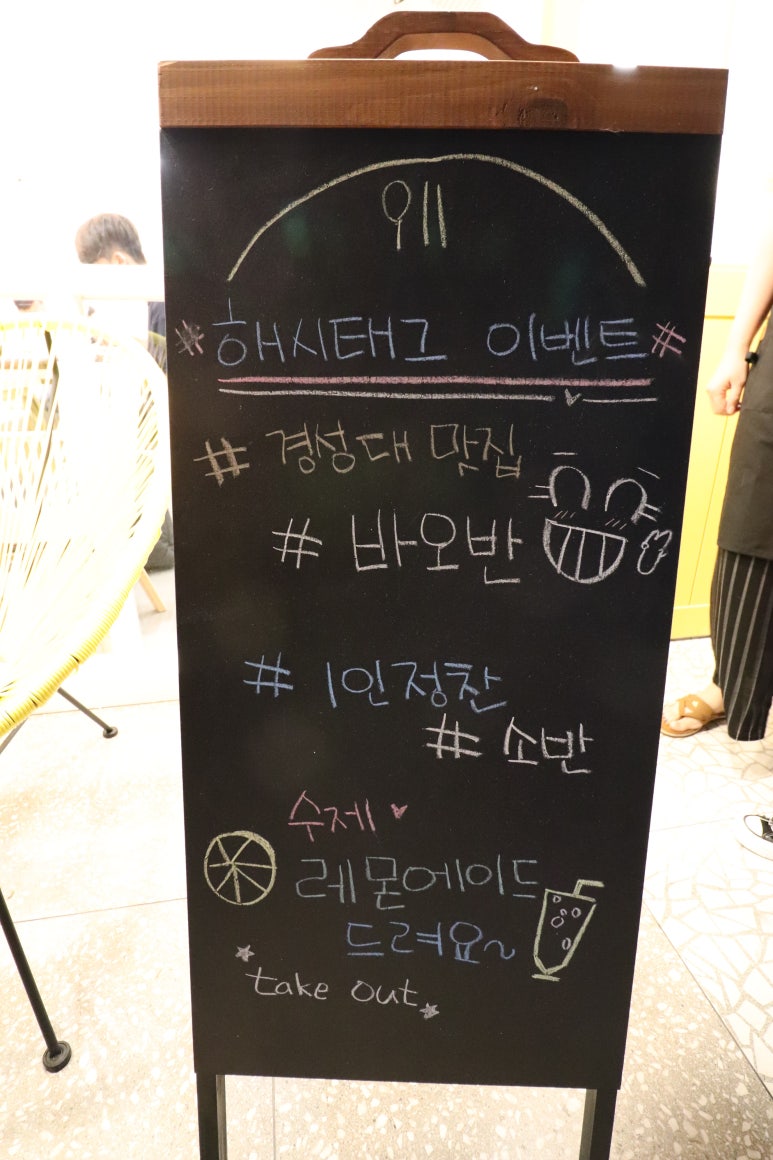 해시태그 이벤트
# 경성대 맛집
# 바오반
# 1인정찬
# 소반
수제
레몬에이드
드려요~
take out